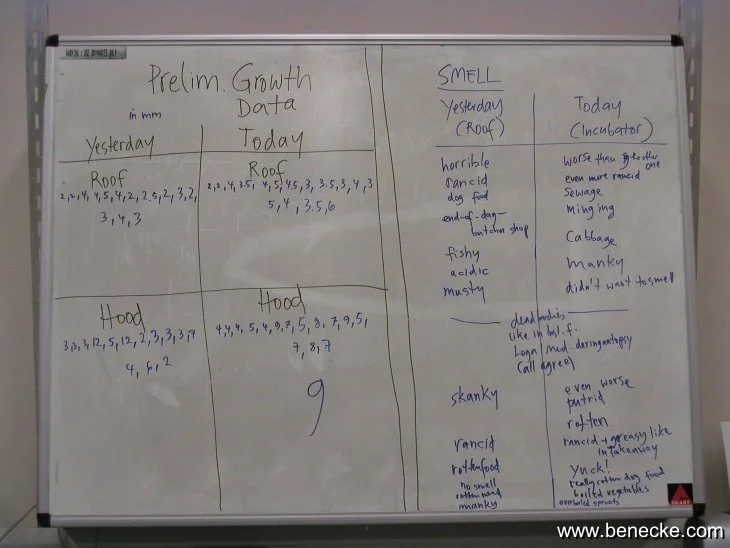 Prelim. Growth
Data
in mm
Yesterday
Today
Roof
2, 2, 4, 4, 5, 4, 2, 2.5, 2, 3, 2,
3, 4, 3
Roof
2, 2, 4, 3.5, 4, 5, 4.5, 3, 3.5, 3, 4, 3
5, 4, 3.5, 6
Hood
3, 3, 3, 12, 5, 12, 2, 3, 3, 3, 7
4, 6, 2
Hood
4, 4, 4, 5, 4, 9, 7, 5, 8, 7, 9, 5,
7, 8, 7
9
SMELL
Yesterday
(Roof)
Today
(Incubator)
horrible
rancid
dog food
end-of-day-
butcher shop
fishy
acidic
musty
worse than the other
one
even more rancid
sewage
minging
cabbage
manky
didn't want to smell
dead bodies
like in
med. during autopsy
(all agree)
skanky
rancid
rotten food
no smell
rotten meat
manky
even worse
putrid
rotten
rancid + greasy like
in Takeaway
Yuck!
really rotten dog food
boiled vegetables
overboiled sprouts
SMART
www.benecke.com